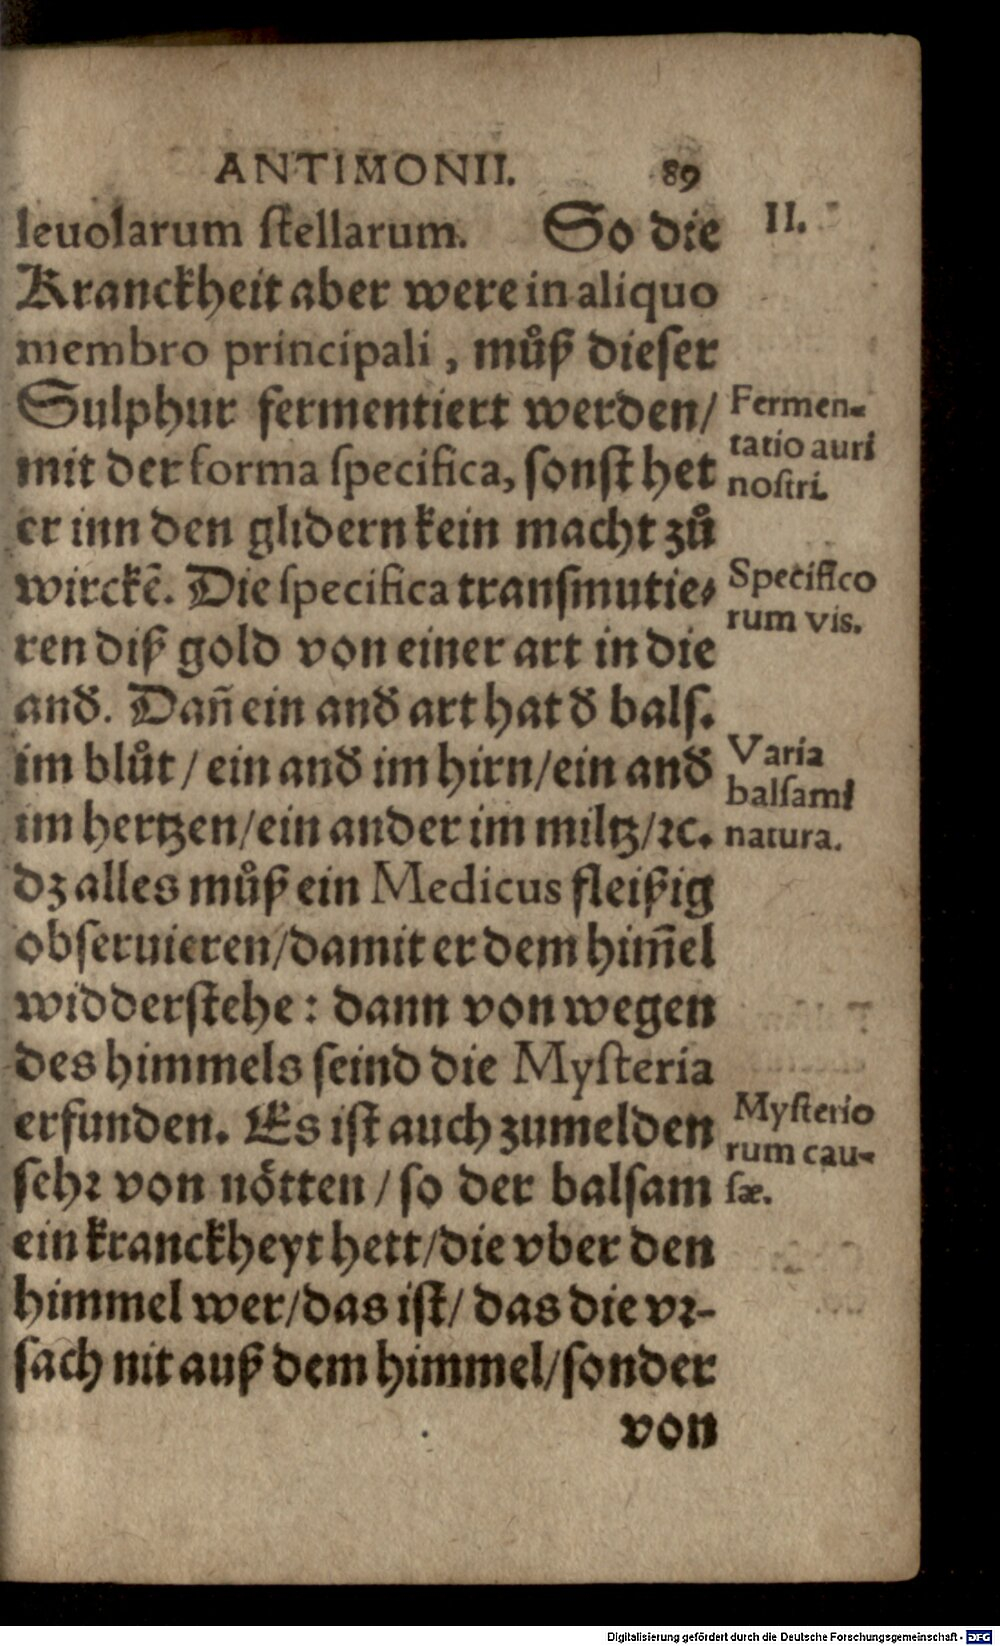 ANTIMONII. 89
leuolarum stellarum. So die
II.
Kranckheit aber were in aliquo
membro principali, mů̊ß dieser
Sulphur fermentiert werden/
mit der forma specifica, sonst het
er inn den glidern kein macht zů
wirckē. Die specifica transmutie⸗
ren diß gold von einer art in die
and̛. Dañ ein and̛ art hat d̛ bals.
im blůt / ein and̛ im hirn/ein and̛
im hertzen/ein ander im miltz/ꝛc.
dz alles můß ein Medicus fleißig
obseruieren/damit er dem him̃el
widderstehe: dann von wegen
des himmels seind die Mysteria
erfunden. Es ist auch zumelden
sehꝛ von nötten / so der balsam
ein kranckheyt hett/die vber den
himmel wer/das ist/ das die vꝛ-
sach nit auß dem himmel/sonder
von
Fermen⸗
tatio auri
nostri.
Specifico
rum vis.
Varia
balsami
natura.
Mysterio
rum cau⸗
sæ.
Digitalisierung gefördert durch die Deutsche Forschungsgemeinschaft - DFG